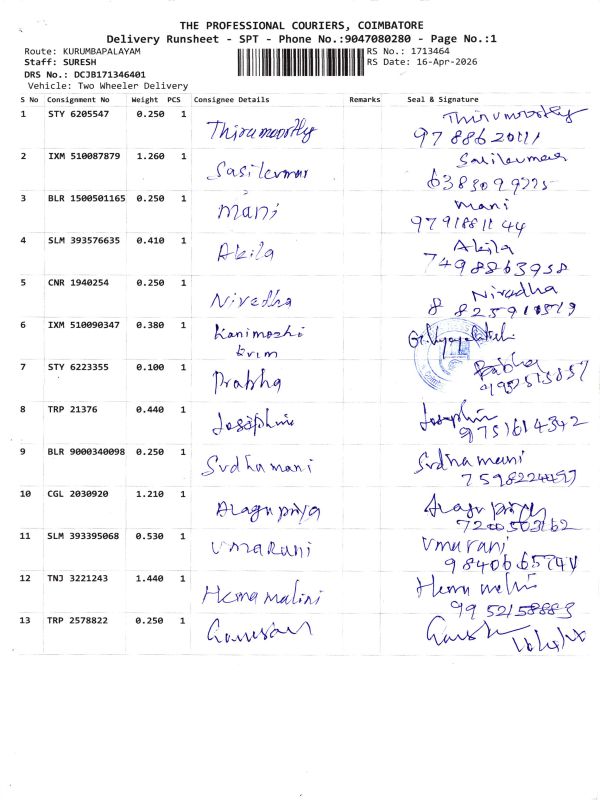 THE PROFESSIONAL COURIERS, COIMBATORE
Delivery Runsheet - SPT - Phone No.:9047080280 - Page No.:1
Route: KURUMBAPALAYAM RS No.: 1713464
Staff: SURESH RS Date: 16-Apr-2026
DRS No.: DCJB171346401
Vehicle: Two Wheeler Delivery
S No Consignment No Weight PCS Consignee Details Remarks Seal & Signature
1 STY 6205547 0.250 1 Thirumoorthy Thirumoorthy
97886 20111
2 IXM 510087879 1.260 1 Sasikumar Sasikumar
6383099225
3 BLR 1500501165 0.250 1 mani mani
9791881144
4 SLM 393576635 0.410 1 Akila Akila
7498863958
5 CNR 1940254 0.250 1 Nivedha Nivedha
6 IXM 510090347 0.380 1 Kanimozhi
7 STY 6223355 0.100 1 Prabha
8 TRP 21376 0.440 1 Josephine Josephin
9751614342
9 BLR 9000340098 0.250 1 Sudhamani Sudhamani
10 CGL 2030920 1.210 1 Alagu priya Alagu priya
7200503162
11 SLM 393395068 0.530 1 Umarani Umarani
12 TNJ 3221243 1.440 1 Hema malini Hema malini
9952158883
13 TRP 2578822 0.250 1 Ganesan